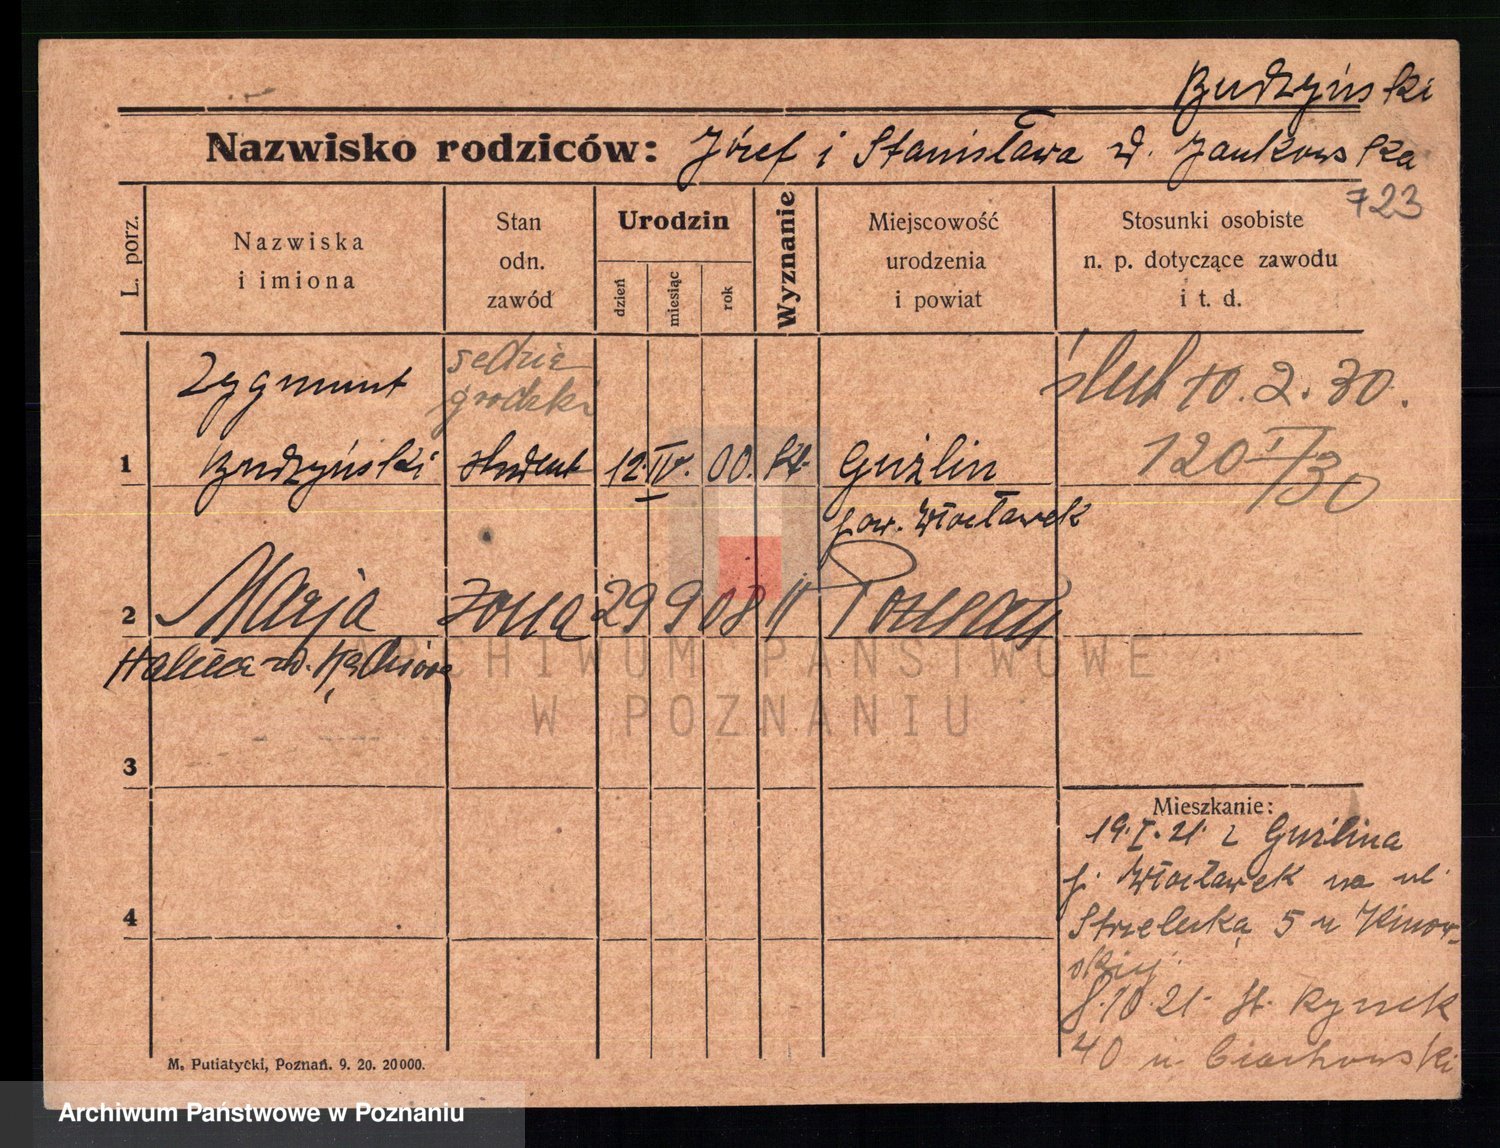 Budzyński
Nazwisko rodziców: Józef i Stanisława d. Jankowska
723
L. porz.
Nazwiska
i imiona
Stan
odn.
zawód
Urodzin
dzień
miesiąc
rok
Wyznanie
Miejscowość
urodzenia
i powiat
Stosunki osobiste
n. p. dotyczące zawodu
i t. d.
Zygmunt
sędzia
grodzki
ślub 10. 2. 30.
1 Budzyński student 12. IV. 00. kt. Guźlin
120 I/30
pow. Włocławek
2 Marja żona 29 9 08 Poznań
Halina
3
Mieszkanie:
19. I. 21. z Guźlina
p. Włocławek na ul.
4
Strzelecką 5 u
8.10.21. St. Rynek
40 u. Ciachowski
M. Putiatycki, Poznań. 9. 20. 20 000.
ARCHIWUM PAŃSTWOWE
W POZNANIU
Archiwum Państwowe w Poznaniu